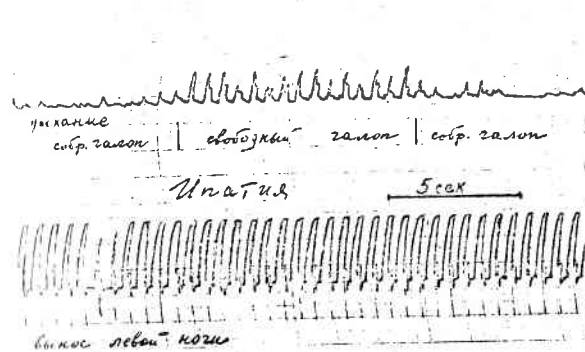 дыхание
собр. галоп | свободный галоп | собр. галоп
Ипатия 5 сек
вынос левой ноги